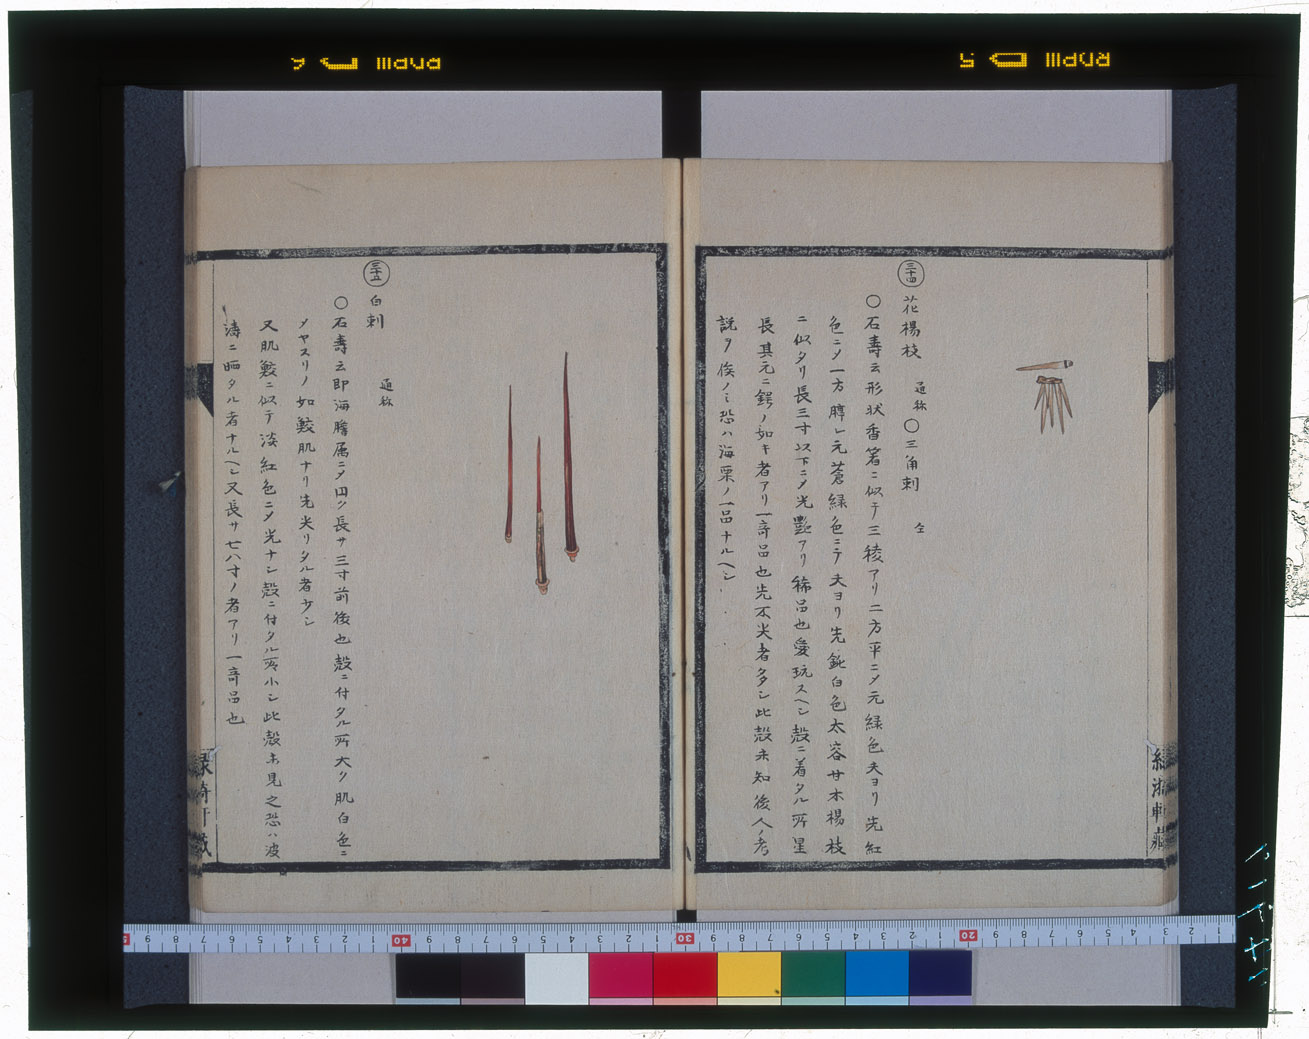 三十四
花楊枝 通称 〇三角刺 仝
〇石寿云形状香箸ニ似テ三稜アリ二方平ニメ元緑色夫ヨリ先紅
色ニメ一方膵レ元蒼緑色ニテ夫ヨリ先鈍白色太容サ木楊枝
ニ似タリ長三寸以下ニメ光艶アリ稀品也愛玩スヘシ殻ニ着タル所星
長其元ニ鍔ノ如キ者アリ一奇品也先不尖者多シ此殻未知後人ノ考
説ヲ俟ノミ恐ハ海栗ノ一品ナルヘシ
緑漪軒蔵
三十五
白刺 通称
〇石壽云即海膽属ニメ円ク長サ三寸前後也殻ニ付タル所大ク肌白色ニ
メヤスリノ如鮫肌ナリ先尖リタル者少シ
又肌鮫ニ似テ淡紅色ニメ光ナシ殻ニ付タル所小シ此殻未見之恐ハ波
濤ニ晒タル者ナルヘシ又長サ七八寸ノ者アリ一奇品也
緑漪軒蔵
RDPIII 5
RDPIII 6
20
30
40